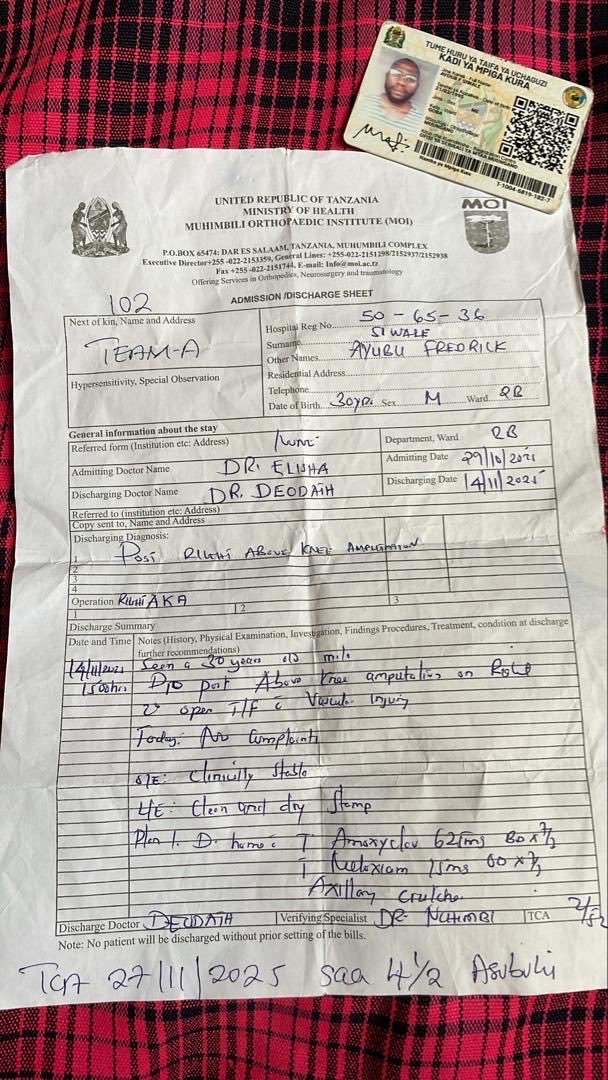 TUME HURU YA TAIFA YA UCHAGUZI
KADI YA MPIGA KURA
T-1004-6819-182-7
UNITED REPUBLIC OF TANZANIA
MINISTRY OF HEALTH
MUHIMBILI ORTHOPAEDIC INSTITUTE (MOI)
MOI
P.O.BOX 65474: DAR ES SALAAM, TANZANIA, MUHUMBILI COMPLEX
Executive Director+255 -022-2153359, General Lines: +255-022-2151298/2152937/2152938
Fax +255 -022-2151744, E-mail: Info@moi.ac.tz
Offering Services in Orthopedics, Neurosurgery and traumatology
ADMISSION /DISCHARGE SHEET
102
Next of kin, Name and Address
TEAM-A
Hypersensitivity, Special Observation
Hospital Reg No. 50-65-36
Surname SIWALE
Other Names AYUBU FREDRICK
Residential Address
Telephone
Date of Birth. 30yr. Sex M Ward. RB
General information about the stay
Referred form (Institution etc: Address)
Department, Ward RB
Admitting Doctor Name DR. ELISHA
Admitting Date 29/10/
Discharging Doctor Name DR. DEODATH
Discharging Date 14/11/2025
Referred to (institution etc: Address)
Copy sent to, Name and Address
Discharging Diagnosis:
1 Post RIGHT ABOVE KNEE AMPUTATION
2
3
4
Operation RIGHT AKA
1 2 3
Discharge Summary
Date and Time Notes (History, Physical Examination, Investigation, Findings Procedures, Treatment, condition at discharge
further recommendations)
14/11/ Seen a 30 years old
1500hrs post Above Knee amputation on Right
2° open T/F c Vascular Injury
Today: No Complaints
O/E: Clinically Stable
L/E: Clean and dry Stump
Plan 1. D. home c T Amoxyclav 625mg BD x 7/7
T Meloxicam 15mg OD x 7/7
Axillary Crutches
Discharge Doctor DEODATH Verifying Specialist DR NCHIMBI TCA 2/52
Note: No patient will be discharged without prior setting of the bills.
TCA 27/11/2025 saa 4 1/2 Asubuhi